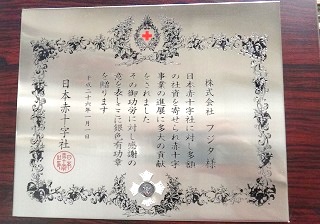 株式会社 フジタ 様
日本赤十字社に対し多額
の社資を寄せられ赤十字
事業の進展に多大の貢献
をされました
その御功労に対し感謝の
意を表しここに銀色有功章
を贈ります
平成二十六年一月一日
日本赤十字社